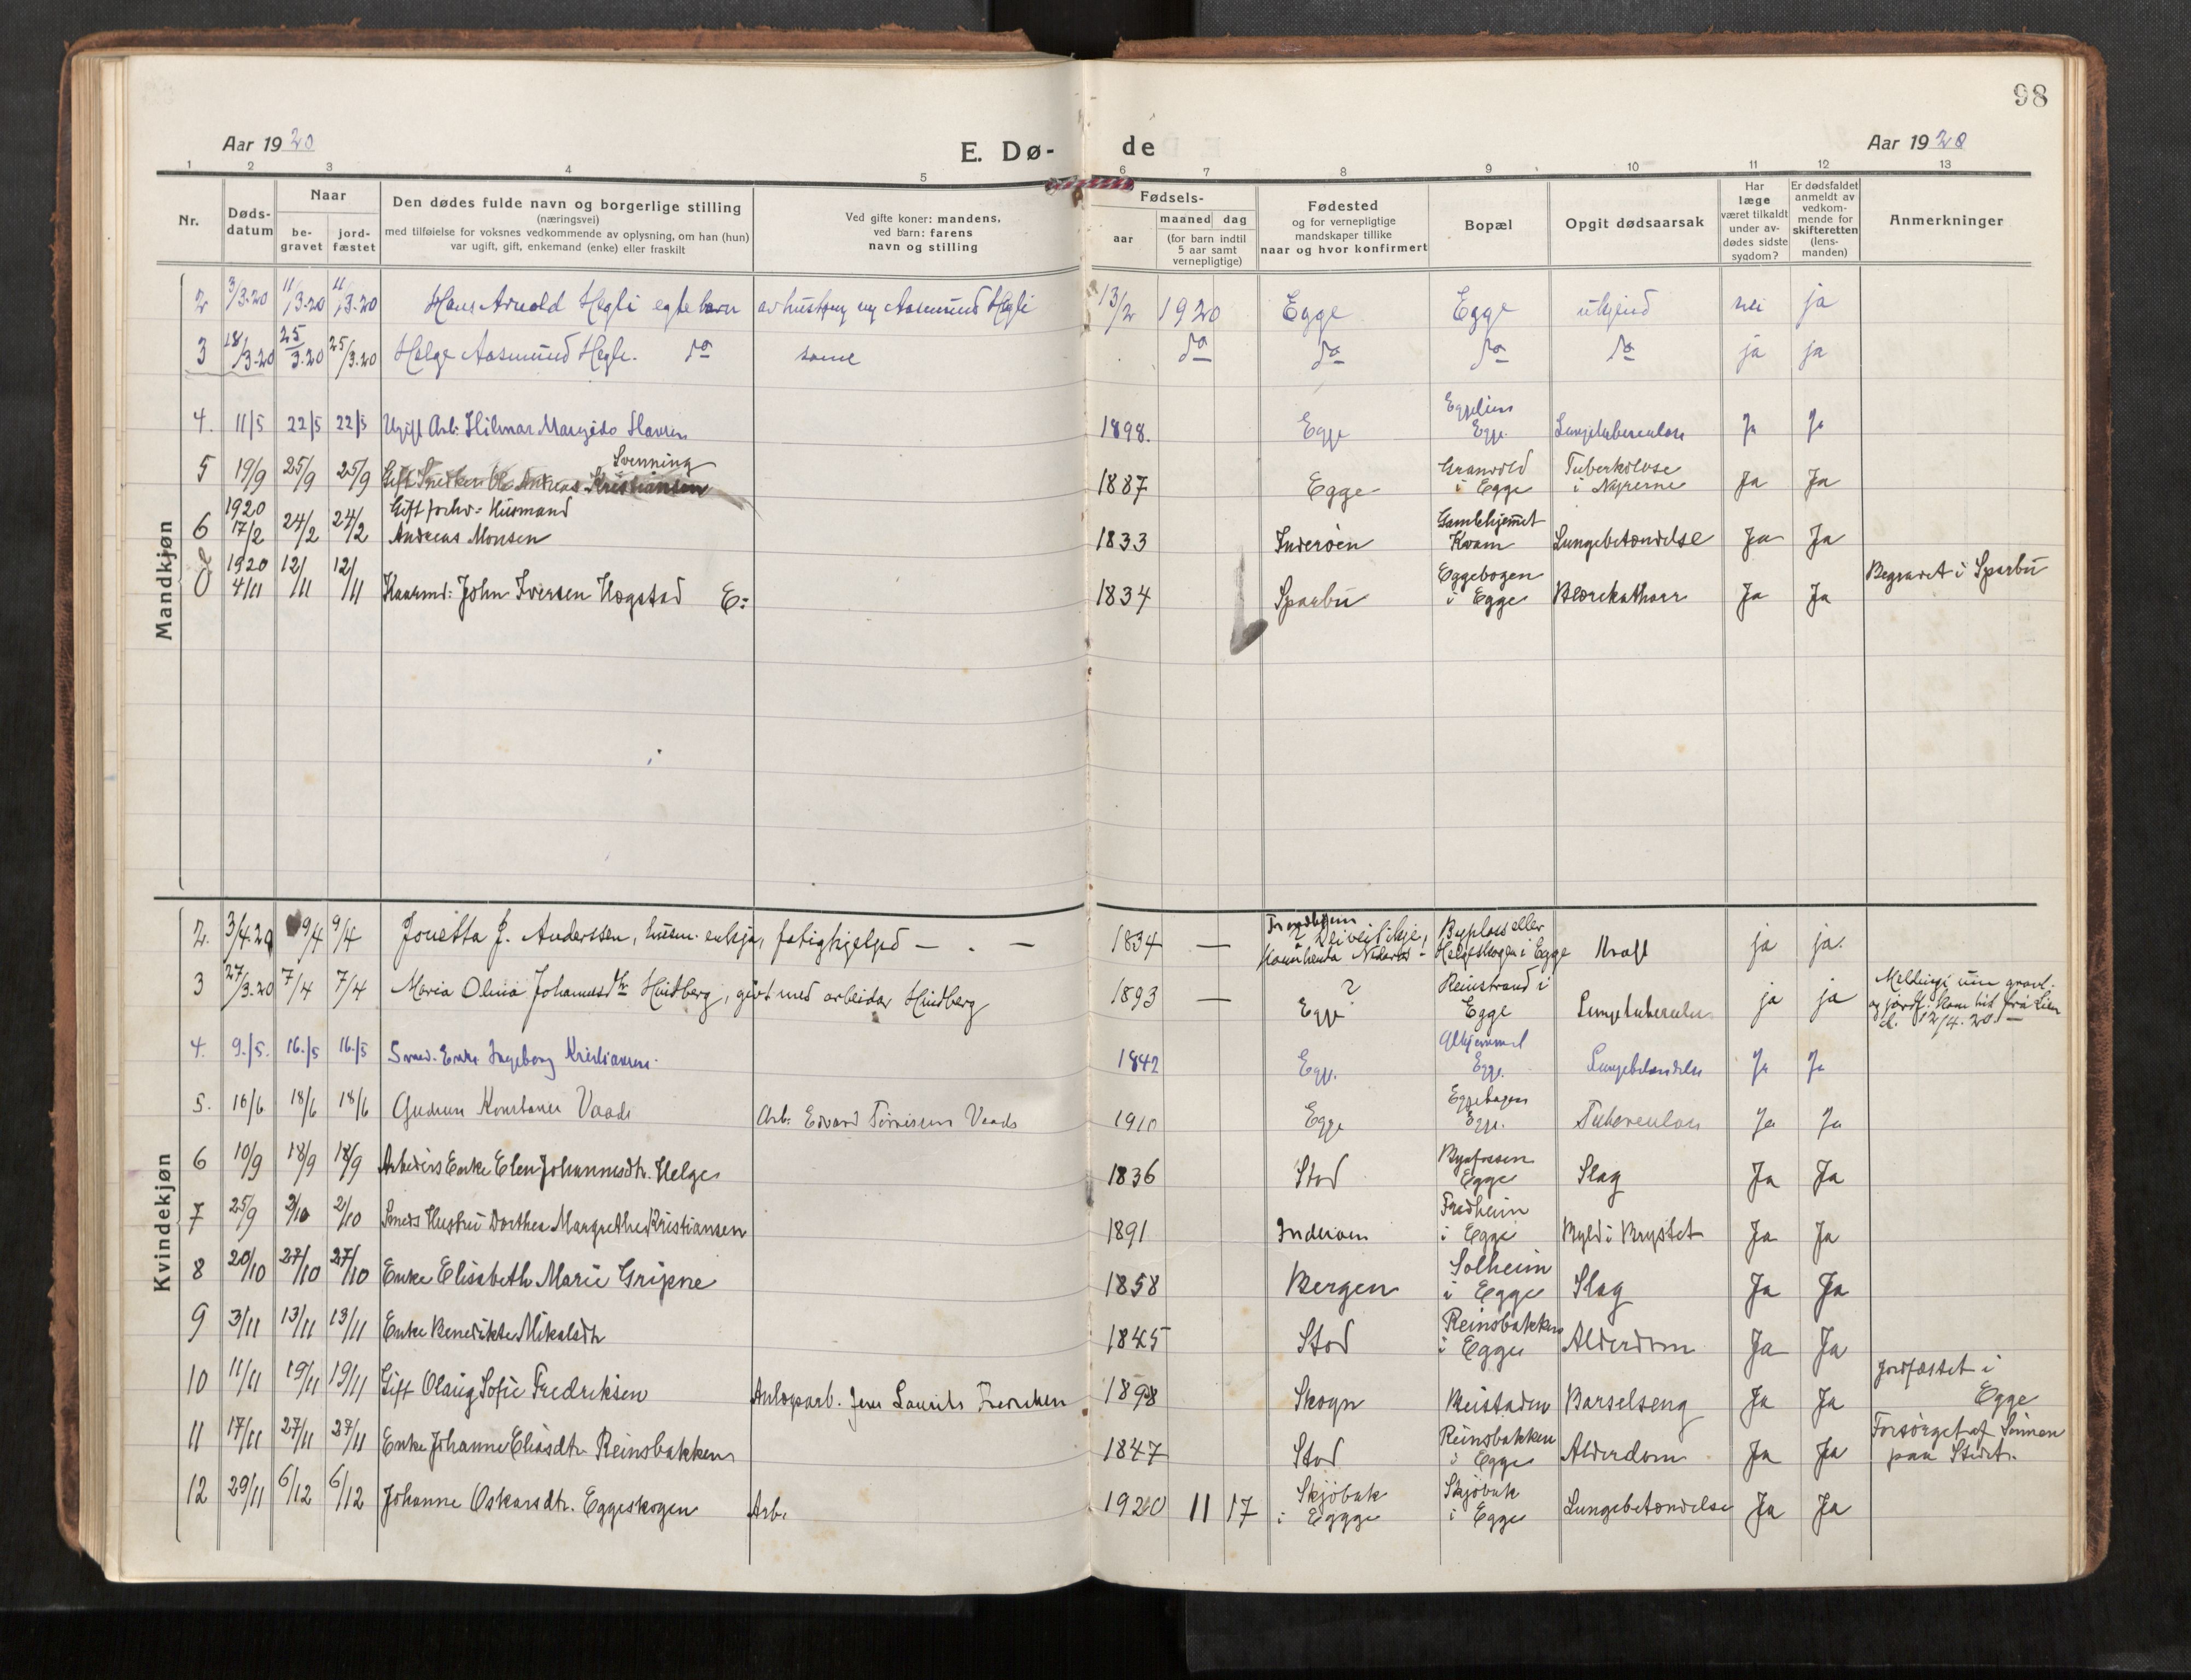 98
Aar 1920
E. Dø-
de
Aar 1920
1 2 3 4 5 6 7 8 9 10 11 12 13
Nr.
Døds-
datum
Naar
be-
gravet
jord-
fæstet
Den dødes fulde navn og borgerlige stilling
(næringsvei)
med tilføielse for voksnes vedkommende av oplysning, om han (hun)
var ugift, gift, enkemand (enke) eller fraskilt
Ved gifte koner: mandens,
ved barn: farens
navn og stilling
Fødsels-
aar
maaned dag
(for barn indtil
5 aar samt
vernepligtige)
Fødested
og for vernepligtige
mandskaper tillike
naar og hvor konfirmert
Bopæl
Opgit dødsaarsak
Har
læge
været tilkaldt
under av-
dødes sidste
sygdom?
Er dødsfaldet
anmeldt av
vedkom-
mende for
skifteretten
(lens-
manden)
Anmerkninger
Mandkjøn
2 3/3.20 11/3.20 11/3.20 Hans Arnold Hegli egte barn av hustru og Aasmund Hegli 13/2 1920 Egge Egge ukjend nei ja
3 18/3.20 25/3.20 25/3.20 Helge Aasmund Hegle. do same do do do do ja ja
4. 11/5 22/5 22/5 Ugift Arb. Hilmar Margido 1898. Egge Egge. Lungetuberculose Ja Ja
5 19/9 25/9 25/9 Gift Snedker Ole Andreas Kristiansen Svenning 1887 Egge Granvold i Egge Tuberkulose i Nyrerne Ja Ja
6 1920 17/2 24/2 24/2 Gift forhv. Husmand
Andreas Monsen 1833 Inderøen Gamlehjemmet Kvam Lungebetændelse Ja Ja
8 1920 4/11 12/11 12/11 Kaarmd. John Iversen Hogstad E: 1834 Sparbu Eggebogen i Egge Blærekatharr Ja Ja Begravet i Sparbu
Kvindekjøn
2. 3/4.20 9/4 9/4 Jonetta J. Anderssen, husm. enkja, fatighjelped — . — 1834 — Trondhjem Byplass eller Helgeskogen i Egge Kraft ja ja.
3 27/3.20 7/4 7/4 Maria Olina Johannesdtr Hindberg, givt med arbeidar Hindberg 1893 — Egge ? Reinstrand i Egge Lungetuberculos ja ja Meldingi um gravl. og jordf. kom hit frå Lien d. 12/4.20. —
4. 9./5. 16./5 16./5 Enke Ingeborg Kristiansen. 1842 Egge. Egge. Lungebetændelse Ja Ja
5. 10/6 18/6 18/6 Gudrun Konstance Vaade Arb: Edvard Vaade 1910 Egge Eggebogen Egge. Tuberculos Ja Ja
6 10/9 18/9 18/9 Arbeiders Enke Elen Johannesdtr. Helge 1836 Stod Byafossen Egge Slag Ja Ja
7 25/9 2/10 2/10 Smeds Hustru Dorthea Margrethe Kristiansen 1891 Inderøen Fredheim i Egge Byld i Brystet Ja Ja
8 20/10 27/10 27/10 Enke Elisabeth Marie Gripne 1858 Bergen Solheim i Egge Slag Ja Ja
9 3/11 13/11 13/11 Enke Benedikte Mikalsdtr 1845 Stod Reinsbakken i Egge Alderdom Ja Ja
10 11/11 19/11 19/11 Gift Olaug Sofie Fredriksen Anlægsarb. Jens Laurits Fredriksen 1898 Skogn Beistaden Barselseng Ja Ja Jordfæstet i Egge
11 17/11 27/11 27/11 Enke Johanne Eliasdtr Reinsbakken 1847 Stod Reinsbakken i Egge Alderdom Ja Ja Forsørget af Sønnen paa Stedet.
12 29/11 6/12 6/12 Johanne Oskarsdtr. Eggeskogen Arb. 1920 11 17 Skjøbak i Eggge Skjøbak i Egge Lungebetændelse Ja Ja